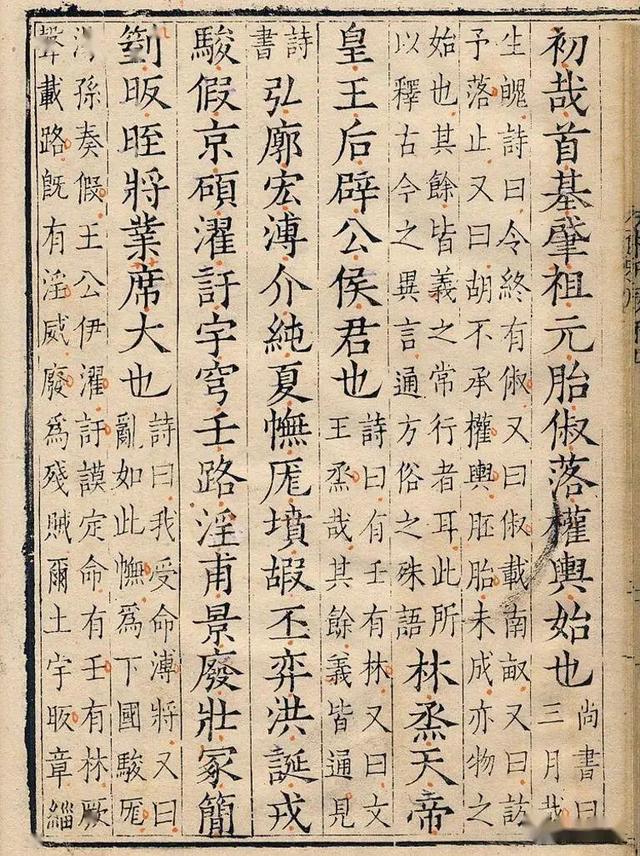 初哉首基肈祖元胎俶落權輿始也
尚書曰
三月哉
生魄詩曰令終有俶又曰俶載南畝又曰訪
予落止又曰胡不承權輿胚胎未成亦物之
始也其餘皆義之常行者耳此所
以釋古今之異言通方俗之殊語
林烝天帝
皇王后辟公侯君也
詩曰有壬有林又曰文
王烝哉其餘義皆通見
詩
書
弘廓宏溥介純夏幠厖墳嘏丕弈洪誕戎
駿假京碩濯訏宇穹壬路淫甫景廢壯冢簡
箌昄晊將業席大也
詩曰我受命溥將又曰
亂如此幠爲下國駿厖
湯孫奏假王公伊濯訏謨定命有壬有林厥
聲載路旣有淫威廢爲殘賊爾土宇昄章緇